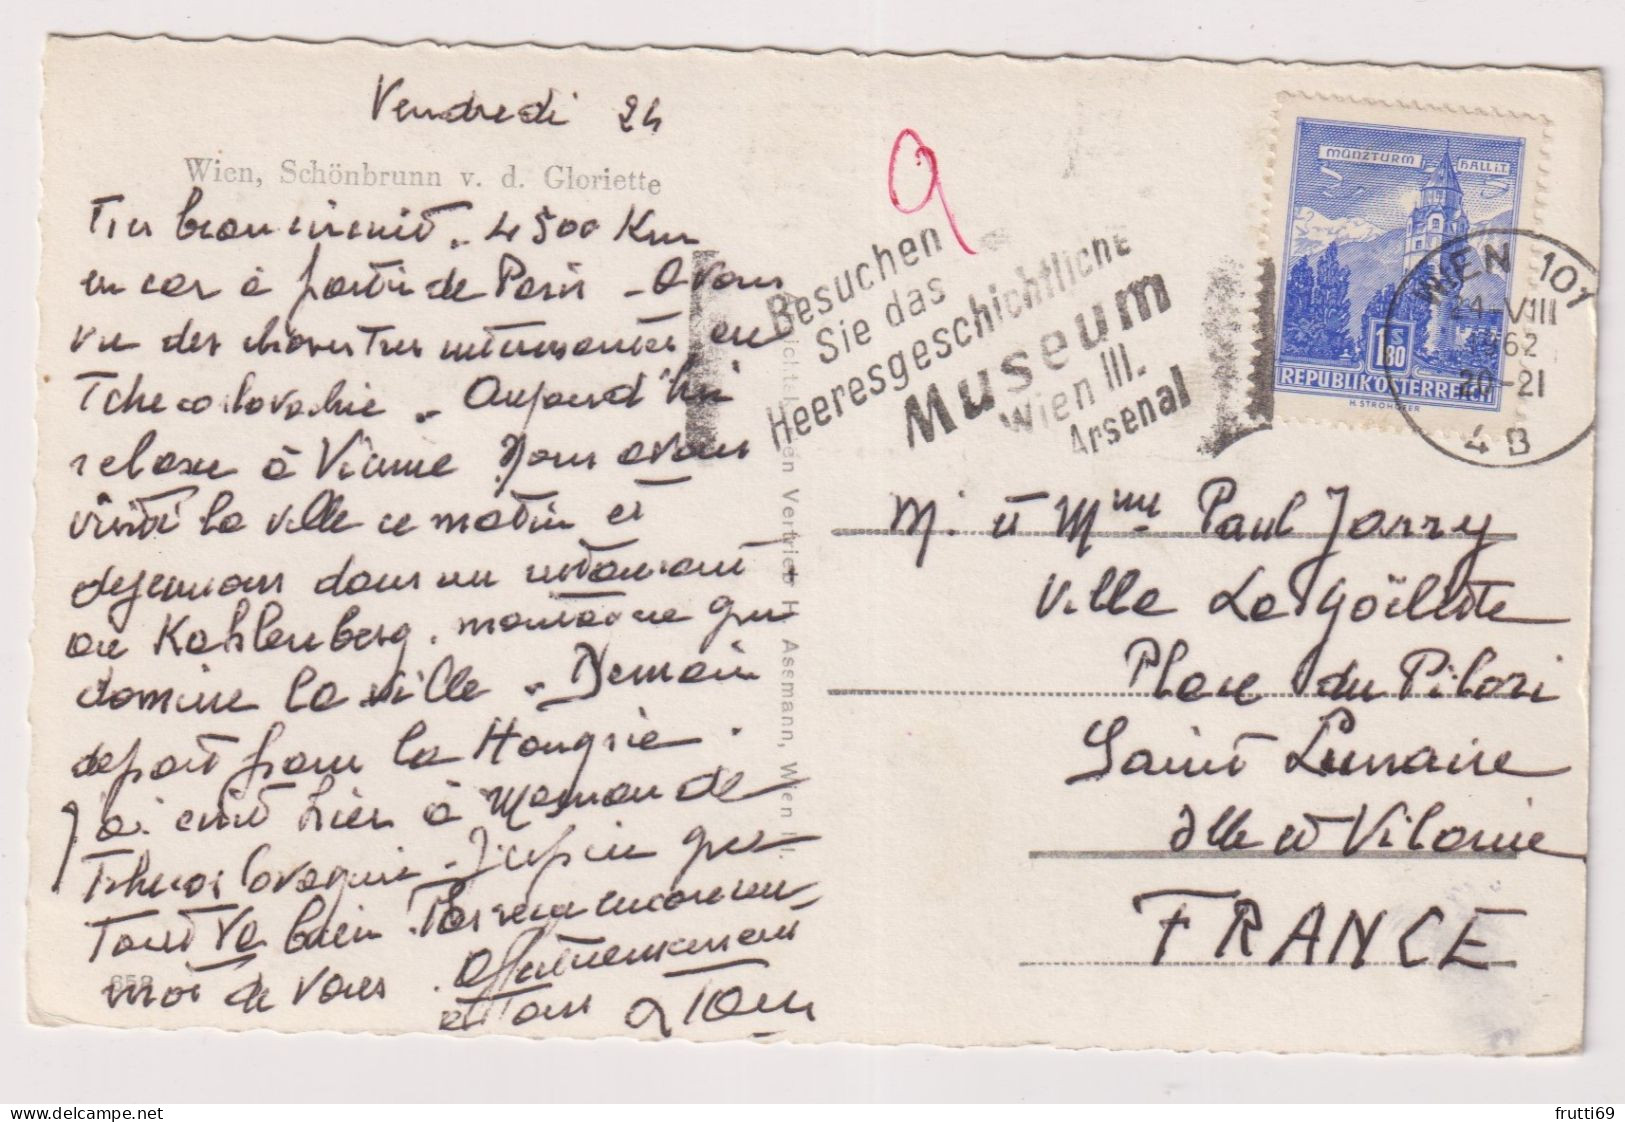 Vendredi 24
Wien, Schönbrunn v. d. Gloriette
Tres beau circuit. 4500 Km
en car à partir de Paris - Avons
vu des choses tres intéressantes en
Tchecoslovaquie - Aujourd'hui
relaxe à Vienne Nous avons
visité la ville ce matin et
dejeunons dans un restaurant
au Kahlenberg. montagne qui
domine la ville - Demain
depart pour la Hongrie.
J'ai ecrit hier à Maman de
Tchecoslovaquie - J'espère que
Tout va bien.
moi de vous. Affectueusement
à Tous
658
Besuchen
Sie das
Heeresgeschichtliche
Museum
Wien III.
Arsenal
9
MÜNZTURM HALL i.T.
1.80 S
REPUBLIK ÖSTERREICH
H. STROHOFER
WIEN 101
24.-VIII
1962
20-21
4B
Vertrieb H. Assmann, Wien
M. et Mme Paul Jarry
Villa La Goëlette
Place du Pilori
Saint Lunaire
Ille et Vilaine
FRANCE
frutti69